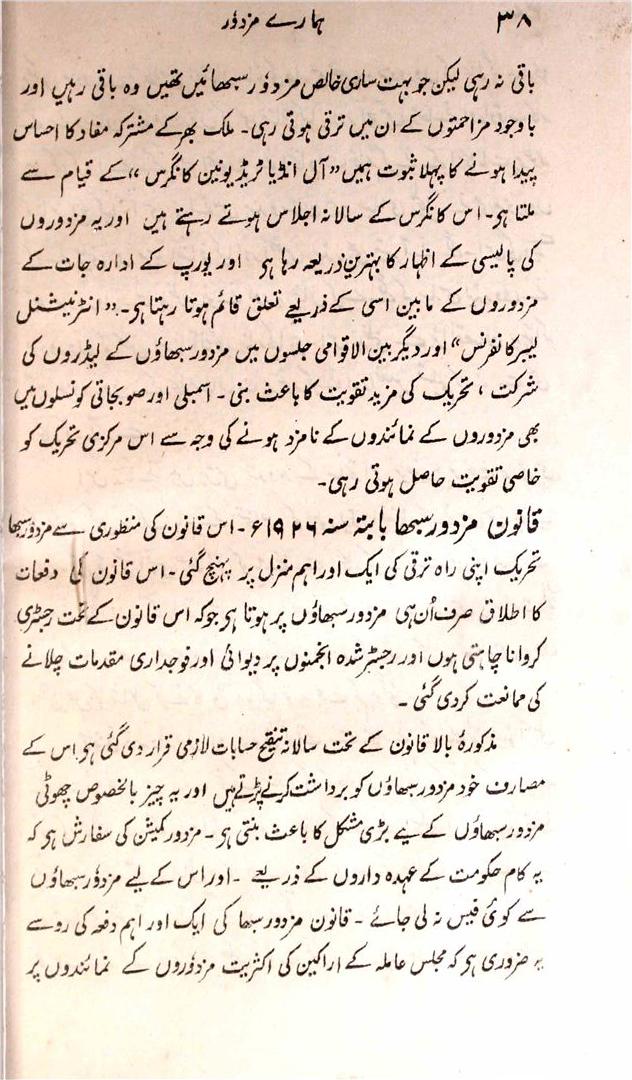 ۳۸
ہمارے مزدور
باقی نہ رہی لیکن جو بہت ساری خالص مزدور سبھائیں تھیں وہ باقی رہیں اور
باوجود مزاحمتوں کے ان میں ترقی ہوتی رہی۔ ملک بھر کے مشترکہ مفاد کا احساس
پیدا ہونے کا پہلا ثبوت ہمیں ”آل انڈیا ٹریڈ یونین کانگرس“ کے قیام سے
ملتا ہو۔ اس کانگرس کے سالانہ اجلاس ہوتے رہتے ہیں اور یہ مزدوروں
کی پالیسی کے اظہار کا بہترین ذریعہ رہا ہو اور یورپ کے ادارہ جات کے
مزدوروں کے مابین اسی کے ذریعے تعلق قائم ہوتا رہتا ہو۔ ”انٹرنیشنل
لیبر کانفرنس“ اور دیگر بین الاقوامی جلسوں میں مزدور سبھاؤں کے لیڈروں کی
شرکت، تحریک کی مزید تقویت کا باعث بنی۔ اسمبلی اور صوبجاتی کونسلوں میں
بھی مزدوروں کے نمائندوں کے نامزد ہونے کی وجہ سے اس مرکزی تحریک کو
خاصی تقویت حاصل ہوتی رہی۔
قانون مزدور سبھا بابتہ سنہ ۱۹۲۶ء۔ اس قانون کی منظوری سے مزدور سبھا
تحریک اپنی راہ ترقی کی ایک اور اہم منزل پر پہنچ گئی۔ اس قانون کی دفعات
کا اطلاق صرف اُن ہی مزدور سبھاؤں پر ہوتا ہو جو کہ اس قانون کے تحت رجسٹری
کروانا چاہتی ہوں اور رجسٹر شدہ انجمنوں پر دیوانی اور فوجداری مقدمات چلانے
کی ممانعت کردی گئی۔
مذکورۂ بالا قانون کے تحت سالانہ تنقیح حسابات لازمی قرار دی گئی ہو اس کے
مصارف خود مزدور سبھاؤں کو برداشت کرنے پڑتے ہیں اور یہ چیز بالخصوص چھوٹی
مزدور سبھاؤں کے لیے بڑی مشکل کا باعث بنتی ہو۔ مزدور کمیشن کی سفارش ہو کہ
یہ کام حکومت کے عہدہ داروں کے ذریعے ۔ اور اس کے لیے مزدور سبھاؤں
سے کوئی فیس نہ لی جائے۔ قانون مزدور سبھا کی ایک اور اہم دفعہ کی رو سے
یہ ضروری ہو کہ مجلس عاملہ کے اراکین کی اکثریت مزدوروں کے نمائندوں پر